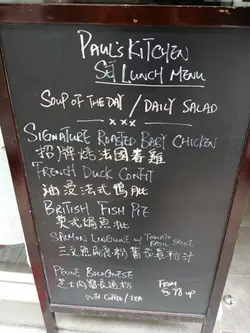 PAUL'S KITCHEN
SET LUNCH MENU
SOUP OF THE DAY / DAILY SALAD
SIGNATURE ROASTED BABY CHICKEN
招牌烤法國春雞
FRENCH DUCK CONFIT
油浸法式鴨肶
BRITISH FISH PIE
英式焗魚批
SALMON LINGUINE W/ TOMATO BASIL SAUCE
三文魚扁意粉
PENNE BOLOGNESE
芝士肉醬長通粉
WITH COFFEE / TEA
FROM
$98 UP